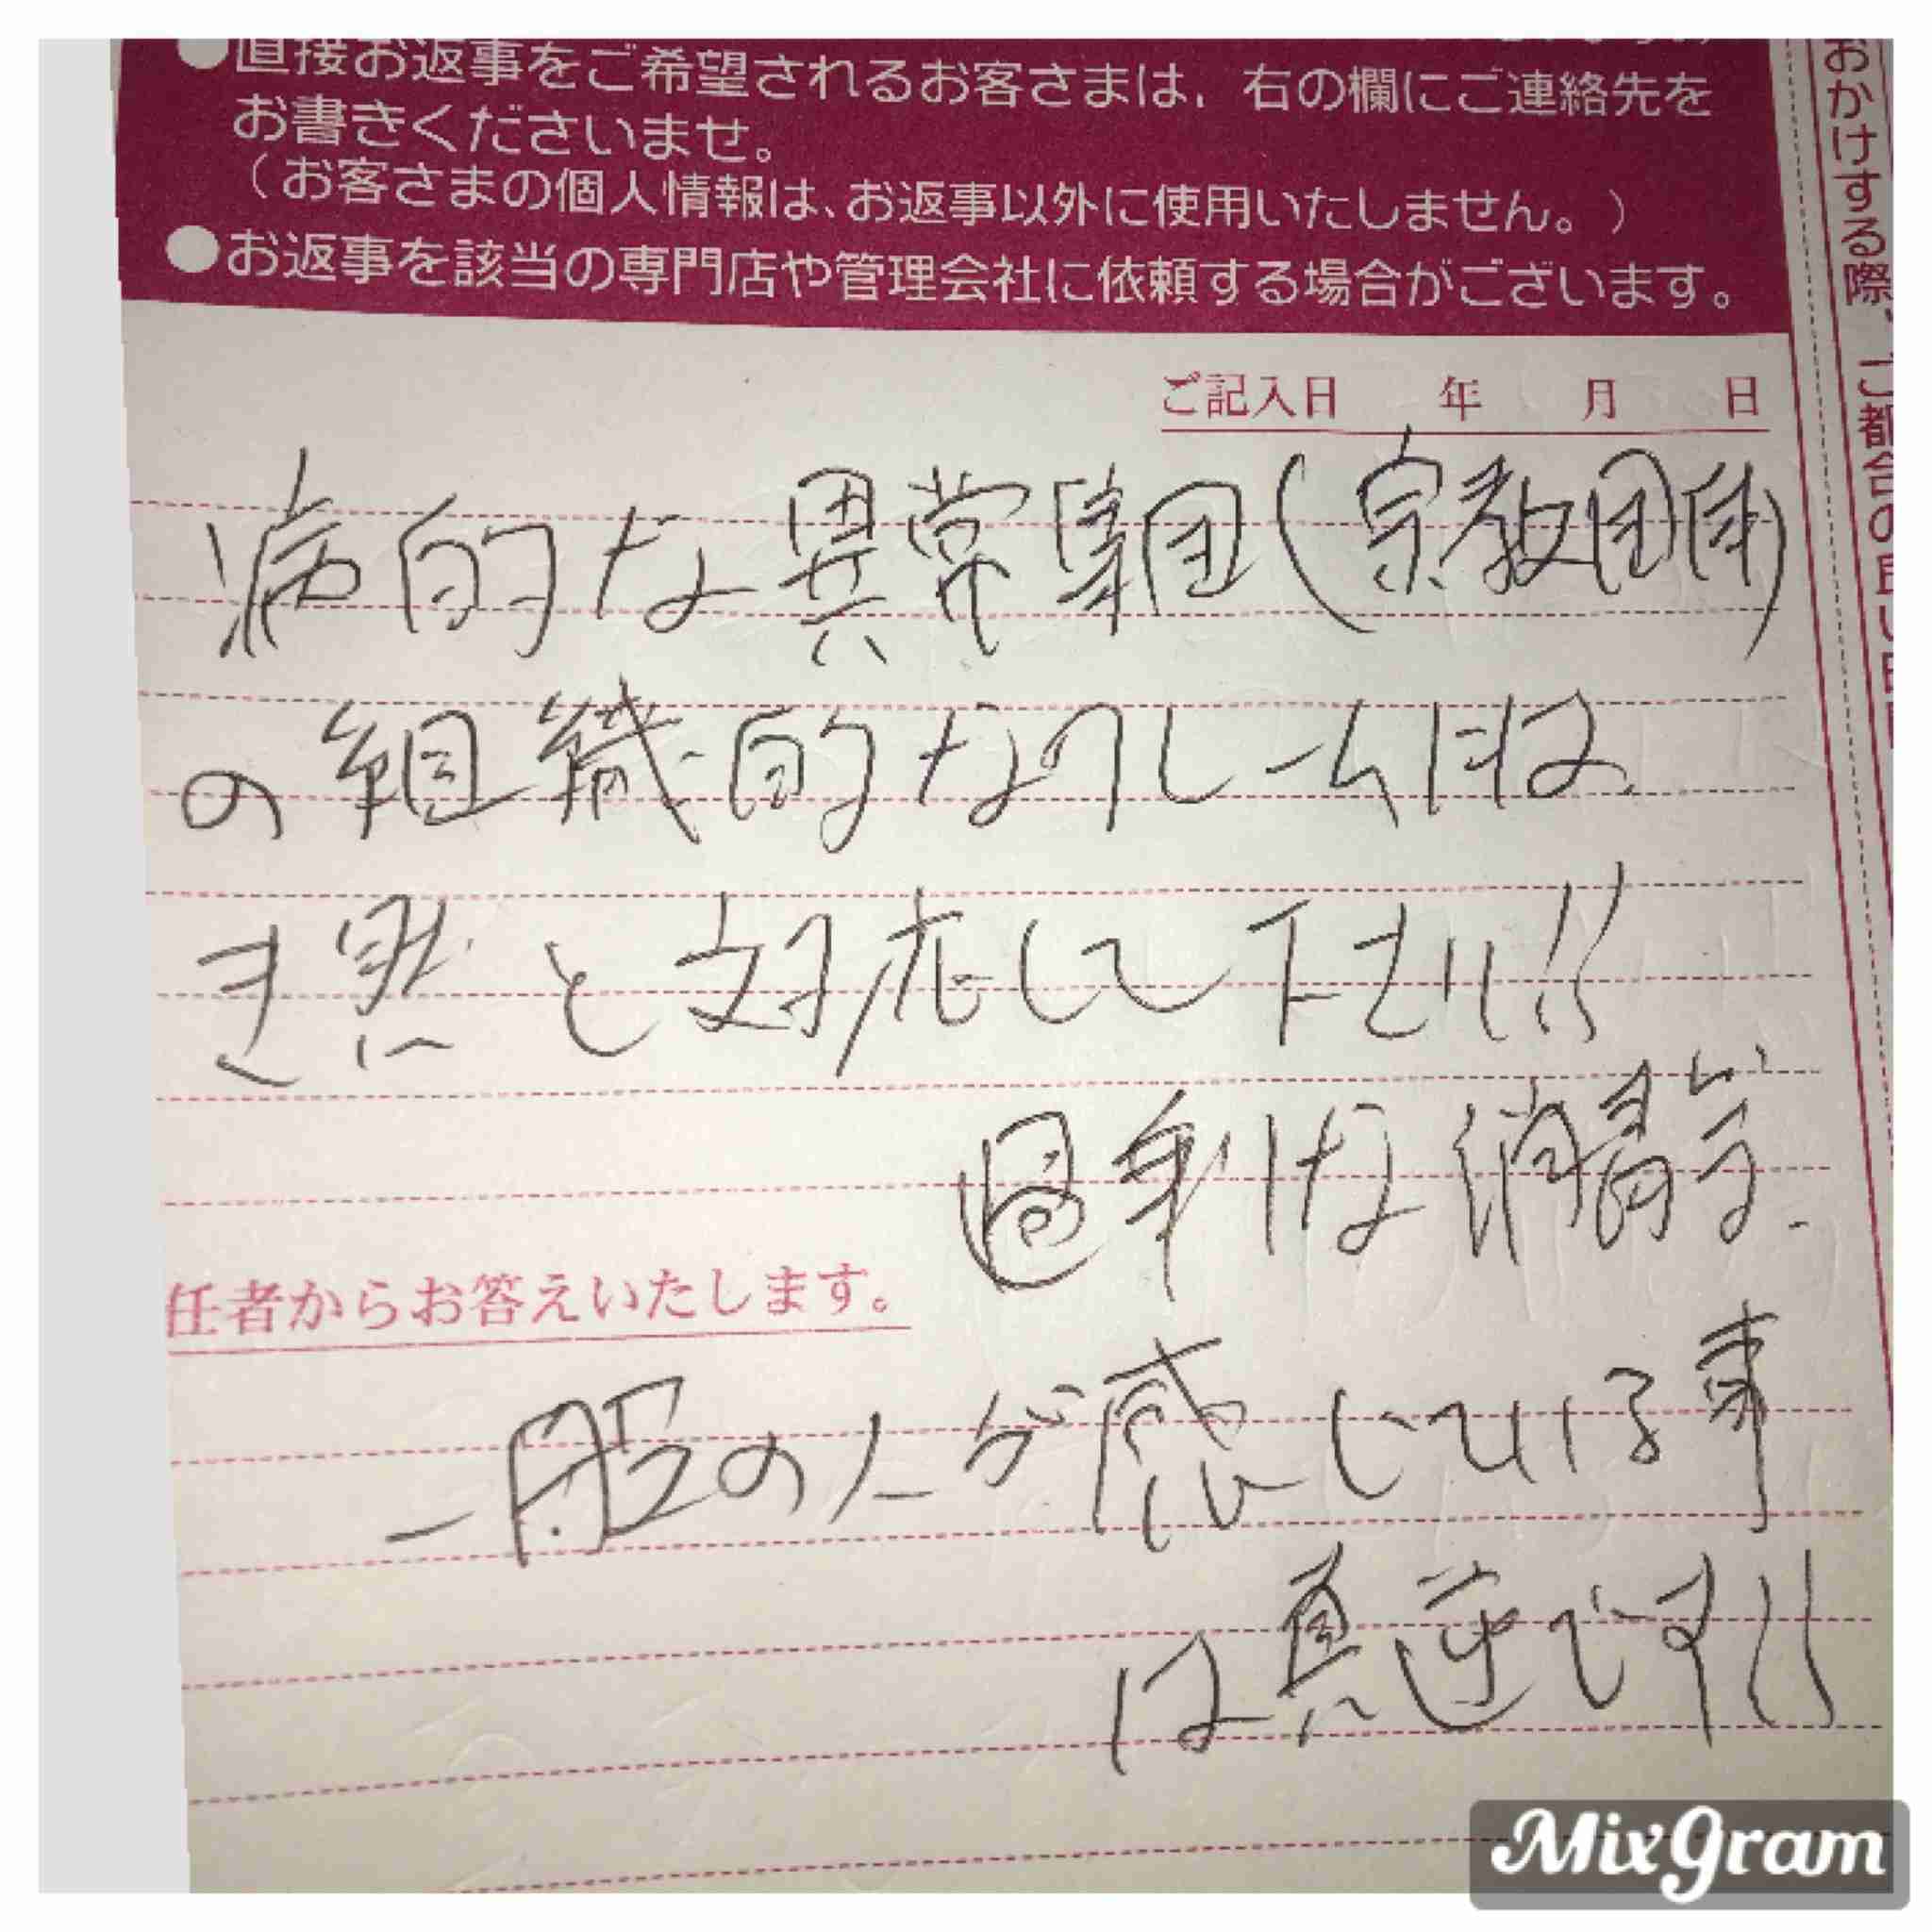 ●直接お返事をご希望されるお客さまは、右の欄にご連絡先を
お書きくださいませ。
（お客さまの個人情報は、お返事以外に使用いたしません。）
●お返事を該当の専門店や管理会社に依頼する場合がございます。
ご記入日 年 月 日
病的な異常集団(宗教団体)
の組織的なクレームには、
き然と対応して下さい!!
過剰な消毒が
任者からお答えいたします。
一般の人が感じている事
は真逆です!!
おかけする際、ご都合の良い
MixGram